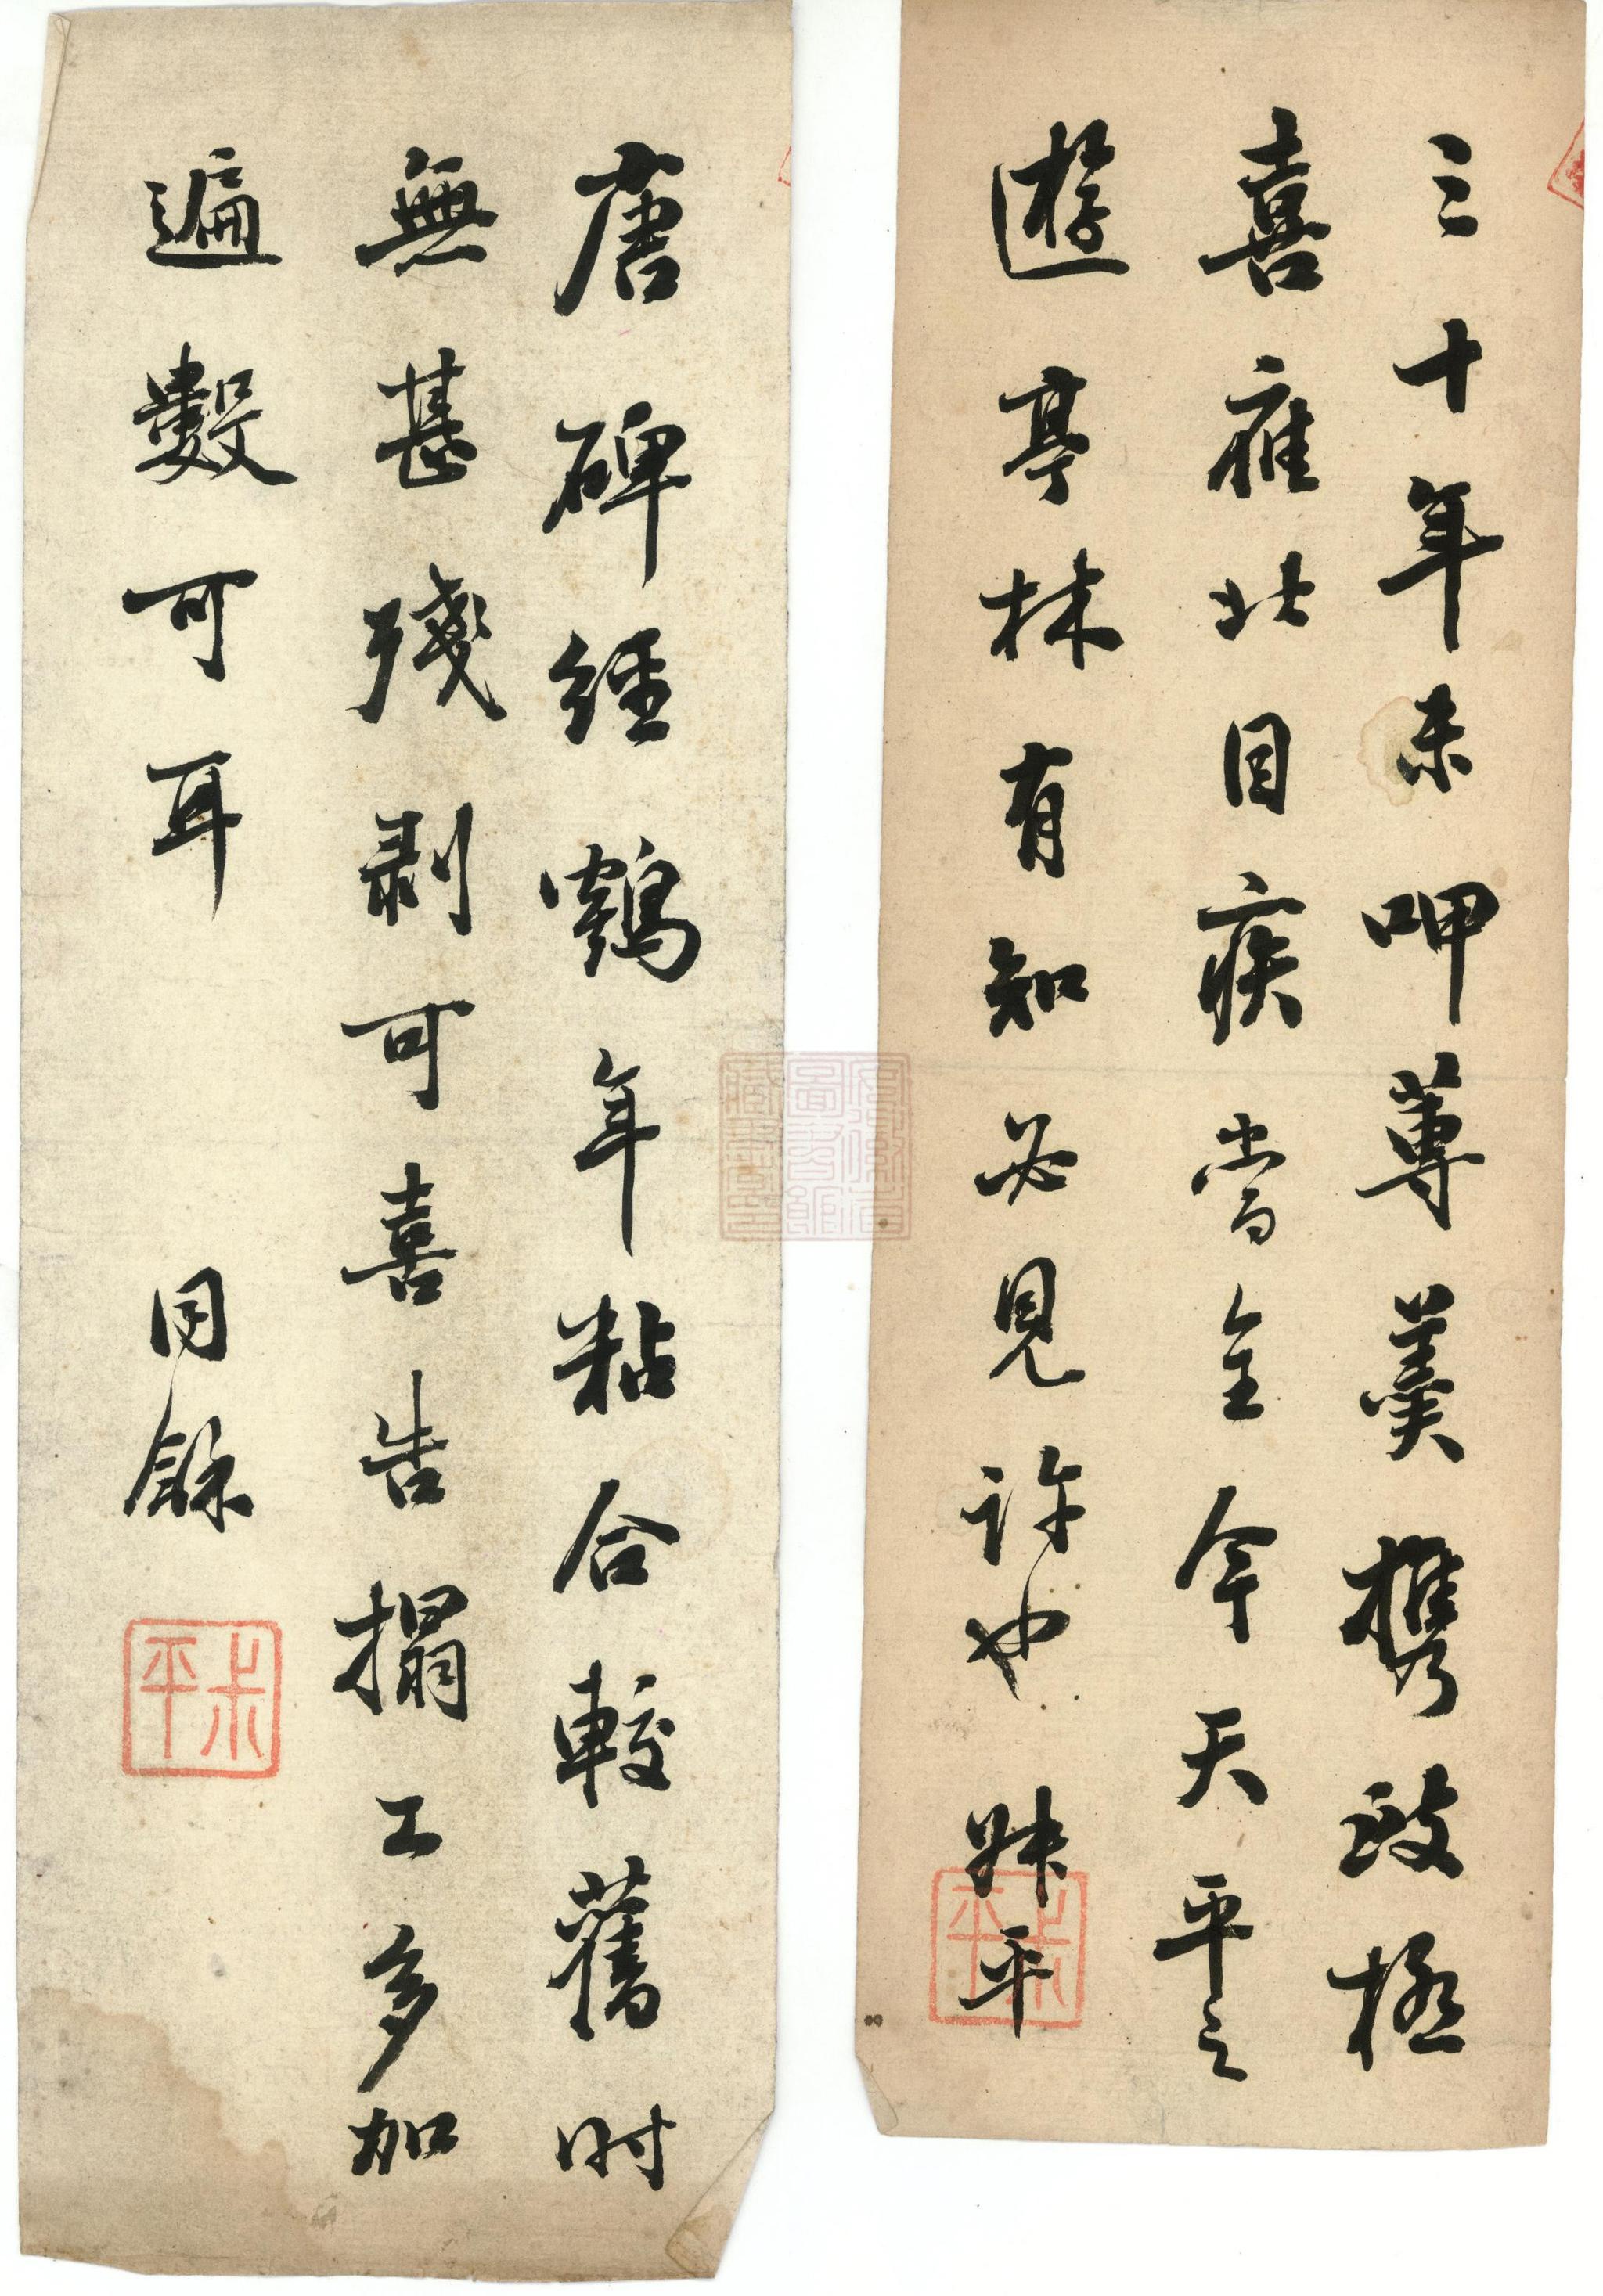 三十年未呷蓴羹攜致極
喜目疾當全今天平之
遊亭林有知必見許也 叔平
叔平
唐碑經鶴年粘合較舊時
無甚殘剥可喜告搨工多加
遍數可耳 同龢
叔平